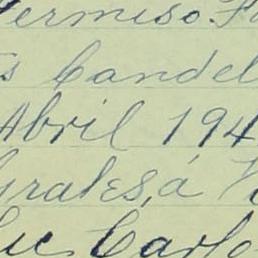 ermiso
s Candel
Abril 194
grales, á
Carlo